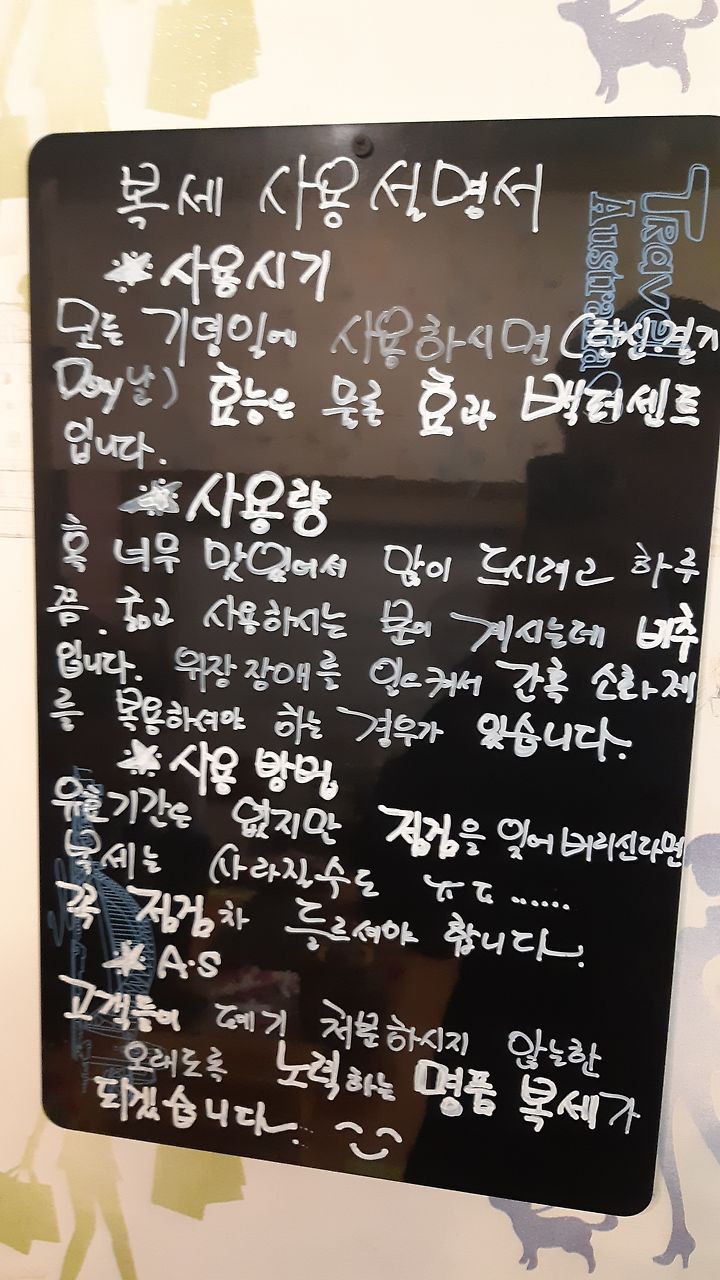 복세 사용설명서
Travel
Australia
사용시기
모든 기념일에 사용하시면 (란신.결기
Day날) 효능은 물론 효과 백퍼센트
입니다.
사용량
혹 너무 맛있어서 많이 드시려고 하루
쯤. 굶고 사용하시는 분이 계시는데 비추
입니다. 위장장애를 일으켜서 간혹 소화제
를 복용하셔야 하는 경우가 있습니다.
사용 방법
유효기간은 없지만 점검을 잊어버리신다면
복세는 사라질수도 ㅠㅠ......
꼭 점검차 들르셔야 합니다.
A.S
고객들이 폐기 처분하시지 않는한
오래도록 노력하는 명품 복세가
되겠습니다.